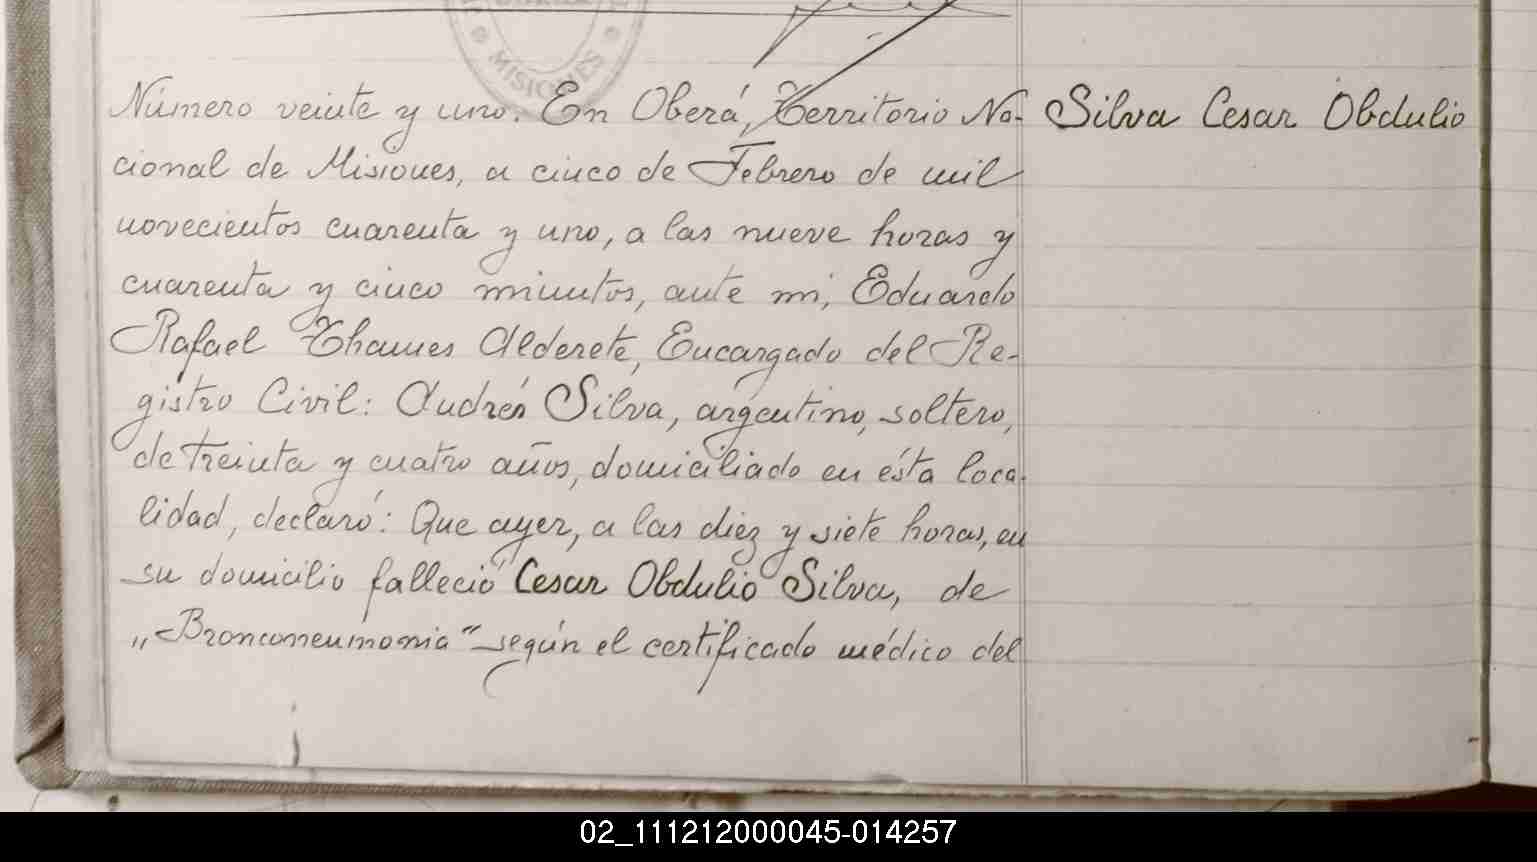 MISIONES
Número veinte y uno. En Oberá, Territorio Na-
Silva Cesar Obdulio
cional de Misiones, a cinco de Febrero de mil
novecientos cuarenta y uno, a las nueve horas y
cuarenta y cinco minutos, ante mi, Eduardo
Rafael Thames Alderete, Encargado del Re-
gistro Civil: Andrés Silva, argentino, soltero,
de treinta y cuatro años, domiciliado en ésta loca-
lidad, declaró: Que ayer, a las diez y siete horas, en
su domicilio falleció Cesar Obdulio Silva, de
„Bronconeumonia" según el certificado médico del
02_111212000045-014257